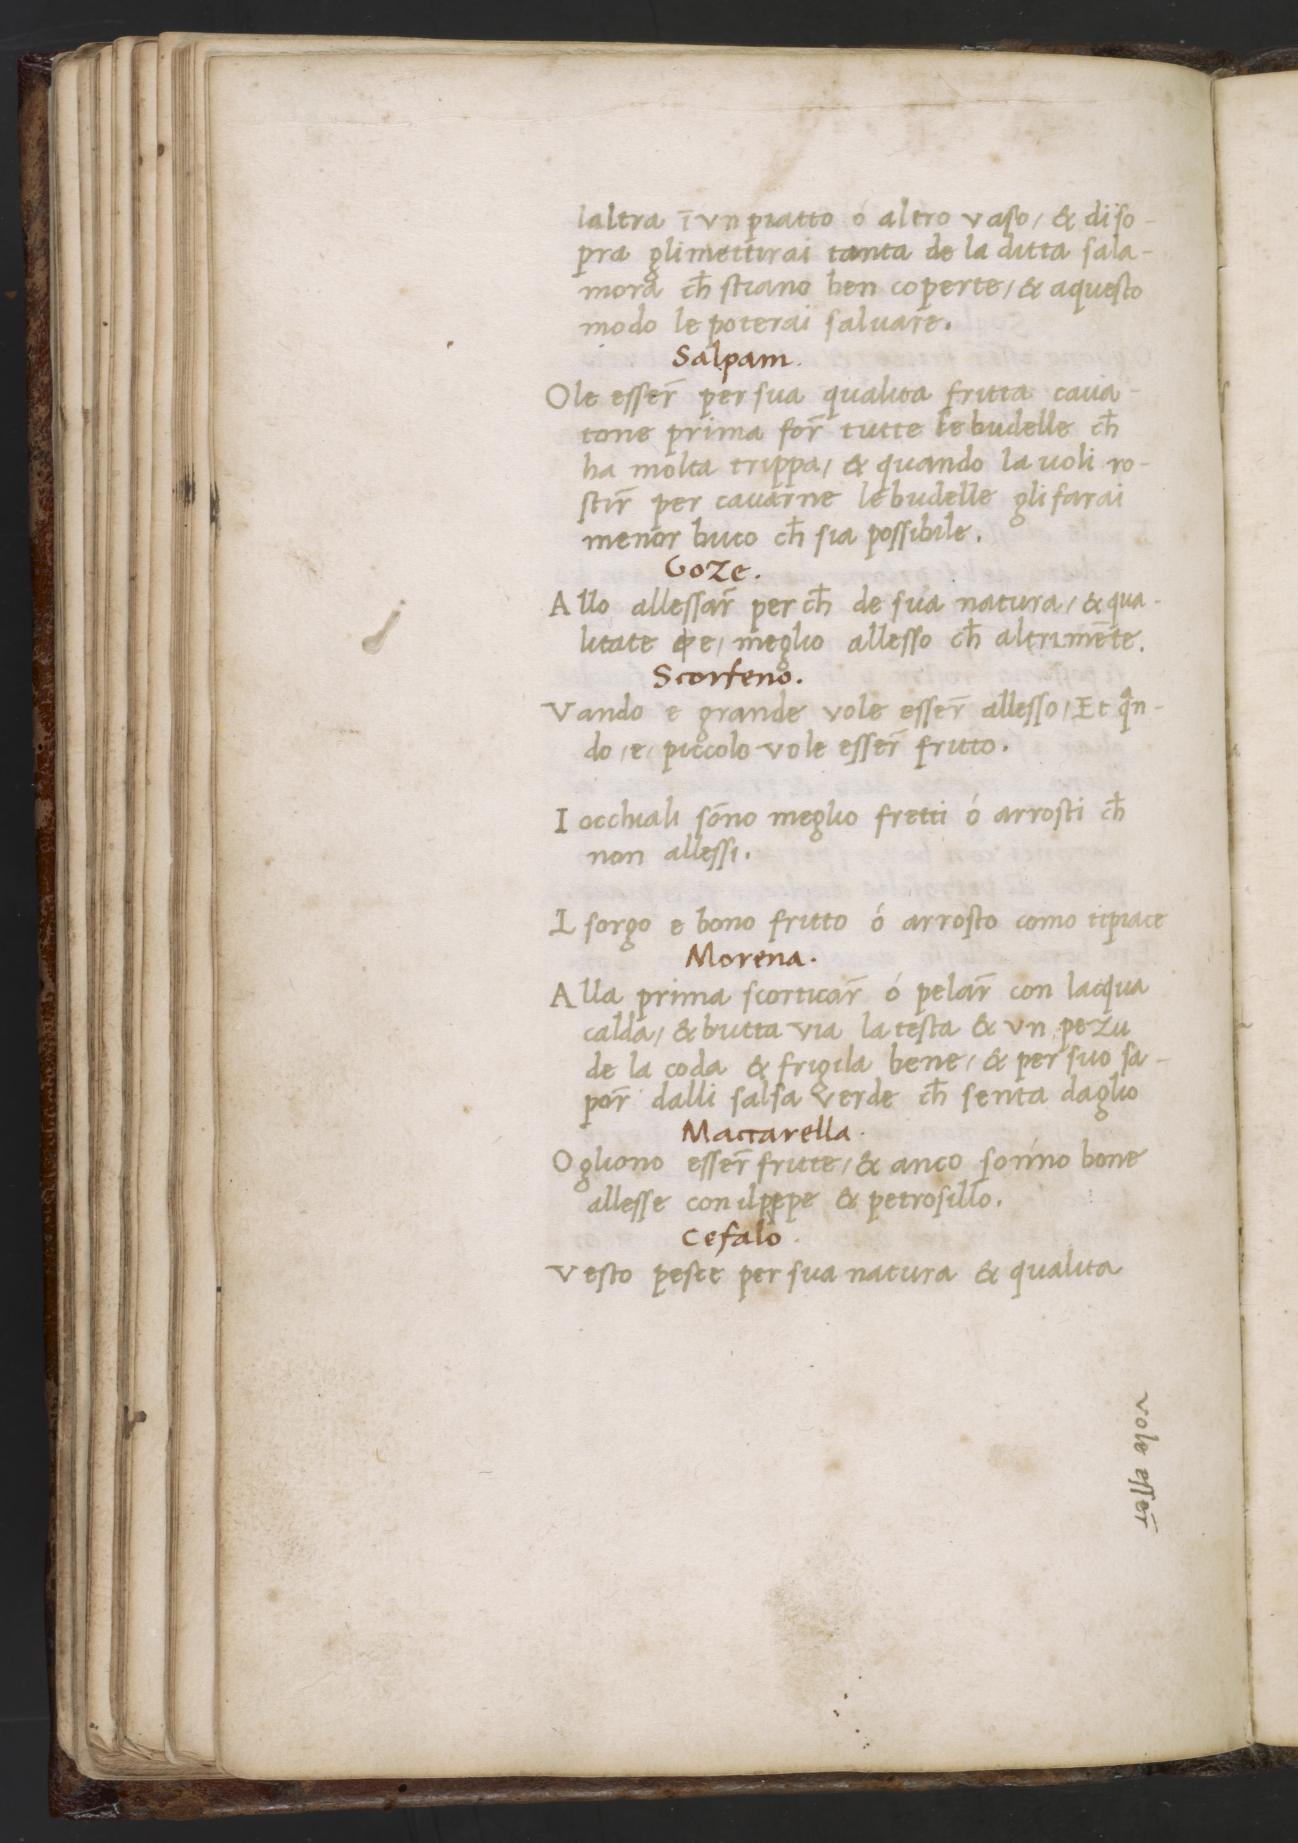 laltra ī vn piatto ó altro vaso, & di so-
pra gli mettirai tanta de la ditta sala-
mora ch̄ stiano ben coperte, & aquesto
modo le poterai saluare.
Salpam.
Ole esser̄ per sua qualita fritta caua-
tone prima for̄ tutte le budelle ch̄
ha molta trippa, & quando la uoli ro-
stir̄ per cauarne le budelle gli farai
menor buco ch̄ sia possibile.
Goze.
Allo allessar̄ per ch̄ de sua natura, & qua-
litate e, meglio allesso ch̄ altrimēte.
Scorfeno.
Vando e grande vole esser̄ allesso, Et qn̄-
do, e, piccolo vole esser̄ fritto.
I occhiali sōno meglio fretti ó arrosti ch̄
non allessi.
L sorgo e bono fritto ó arrosto como ti piace
Morena.
Alla prima scorticar̄ ó pelar̄ con lacqua
calda, & butta via la testa & vn pezu
de la coda & frigila bene, & per suo sa-
por̄ dalli salsa verde ch̄ senta daglio
Maccarella.
Ogliono esser̄ fritte, & anco sonno bone
allesse con il pepe & petrosillo.
Cefalo.
Vesto pesce per sua natura & qualita
vole esser̄